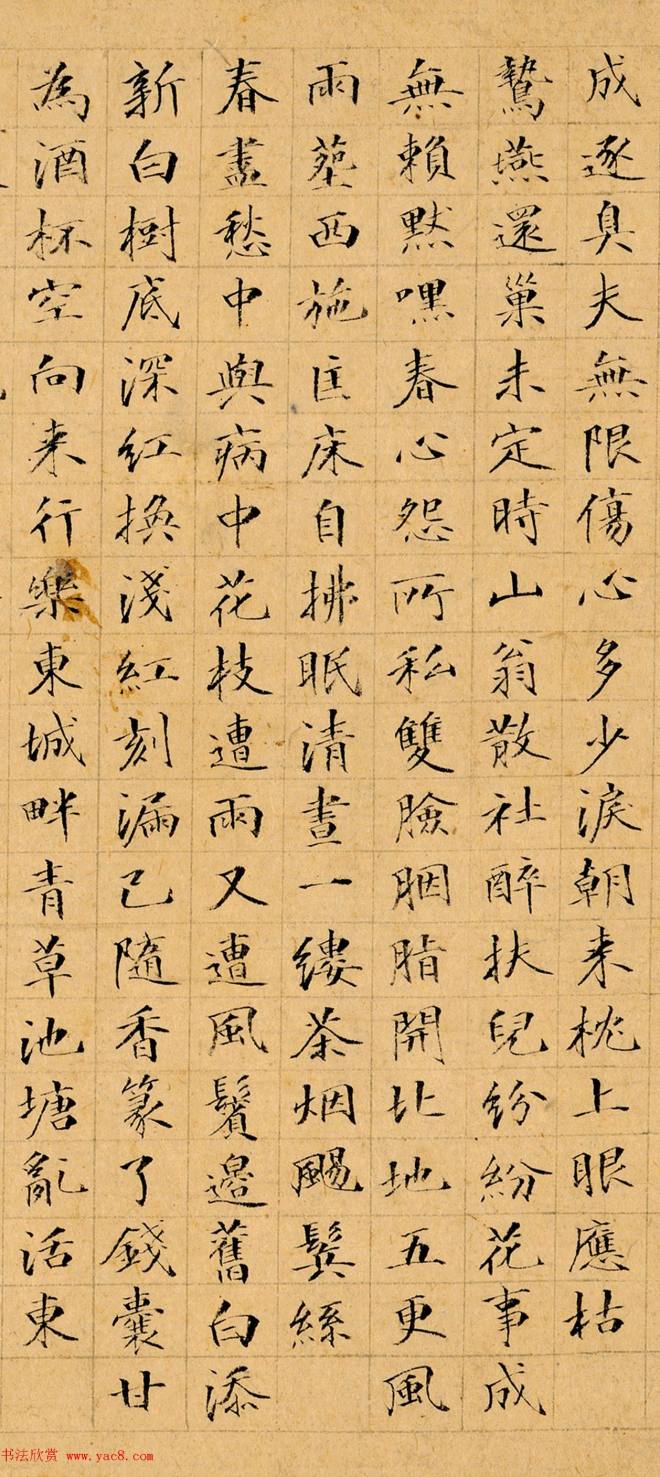 成逐臭夫無限傷心多少淚朝来枕上眼應枯
鶩燕還巢未定時山翁散社醉扶兒紛紛花事成
無賴默嘿春心怨所私雙臉胭脂開北地五更風
雨葬西施匡床自拂眠清晝一縷茶烟颺鬢絲
春盡愁中與病中花枝遭雨又遭風鬢邊舊白添
新白樹底深紅換淺紅刻漏已隨香篆了錢囊甘
為酒杯空向来行樂東城畔青草池塘亂活東
书法欣赏 www.yac8.com